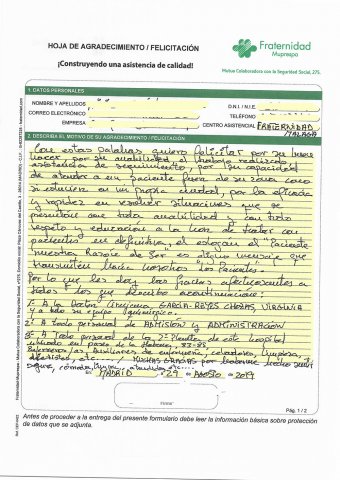 HOJA DE AGRADECIMIENTO / FELICITACIÓN
¡Construyendo una asistencia de calidad!
Fraternidad
Muprespa
Mutua Colaboradora con la Seguridad Social, 275.
1. DATOS PERSONALES
NOMBRE Y APELLIDOS
D.N.I. / N.I.E.
CORREO ELECTRÓNICO
TELÉFONO
EMPRESA
CENTRO ASISTENCIAL FRATERNIDAD
MÁLAGA
2. DESCRIBA EL MOTIVO DE SU AGRADECIMIENTO / FELICITACIÓN
Con estas palabras quiero felicitar por su buen
hacer por su amabilidad, el trabajo realizado,
asistencia de seguimiento, por su capacidad
de atender a un paciente fuera de su zona como
si estuviera en su propia ciudad, por la eficacia
y rapidez en resolver situaciones que se
presentan con toda amabilidad y con todo
respeto y educación a la hora de tratar con
pacientes en definitiva, el eslogan el Paciente
nuestra Razón de Ser es
transmiten hacia nosotros los Pacientes.
Por lo que les doy las gracias
a todos los que describo a continuación:
1º A la Doctora Cirujana GARCÍA-REYES CHOZAS, VIRGINIA
y a todo su equipo quirúrgico.
2º A todo personal de ADMISIÓN y ADMINISTRACIÓN
3º A todo personal de la 2ª Planta de este hospital
ubicado en Paseo de la Habana, 83-85
Enfermeros/as, Auxiliares de enfermería, celadores, limpieza,
etc... MUCHAS GRACIAS por haberme hecho sentir
segura, cómoda, atendida etc...
MADRID, 29 Agosto 2019
Firma
Pág. 1 / 2
Antes de proceder a la entrega del presente formulario debe leer la información básica sobre protección
de datos que se adjunta.